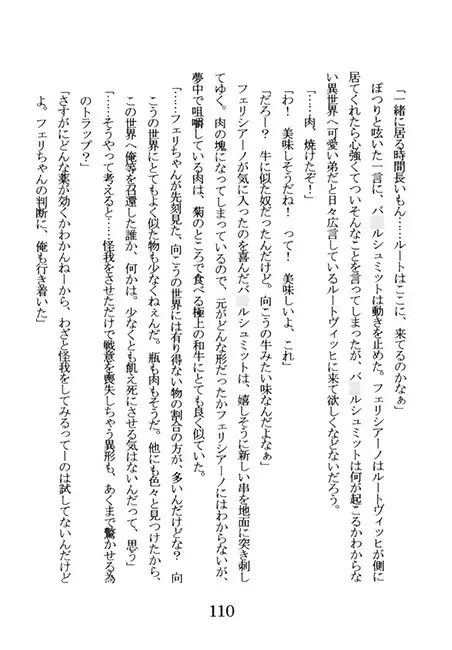 「一緒に居る時間長いもん……ルートはここに、来てるのかなぁ」
ぽつりと呟いた一言に、バ ルシュミットは動きを止めた。フェリシアーノはルートヴィッヒが側に
居てくれたら心強くてついそんなことを言ってしまったが、バ ルシュミットは何が起こるかわからな
い異世界へ可愛い弟だと日々広言しているルートヴィッヒに来て欲しくなどないだろう。
「……肉、焼けたぞ！」
「わ！　美味しそうだね！　って！　美味しいよ、これ」
「だろー？　牛に似た奴だったんだけど。向こうの牛みたい味なんだよなぁ」
フェリシアーノが気に入ったのを喜んだバ ルシュミットは、嬉しそうに新しい串を地面に突き刺し
てゆく。肉の塊になってしまっているので、元がどんな形だったかフェリシアーノにはわからないが、
夢中で咀嚼している肉は、菊のところで食べる極上の和牛にとても良く似ていた。
「……フェリちゃんが先刻見た、向こうの世界には有り得ない物の割合の方が、多いんだけどな？　向
こうの世界にとてもよく似た物も少なくねぇんだ。瓶も肉もそうだ。他にも色々と見つけたから、
この世界へ俺等を召還した誰か、何かは。少なくとも飢え死にさせる気はないんだって、思う」
「……そうやって考えると……怪我をさせただけで戦意を喪失しちゃう異形も、あくまで驚かせる為
のトラップ？」
「さすがにどんな薬が効くかわかんねーから、わざと怪我をしてみるってーのは試してないんだけど
よ。フェリちゃんの判断に、俺も行き着いた」
110